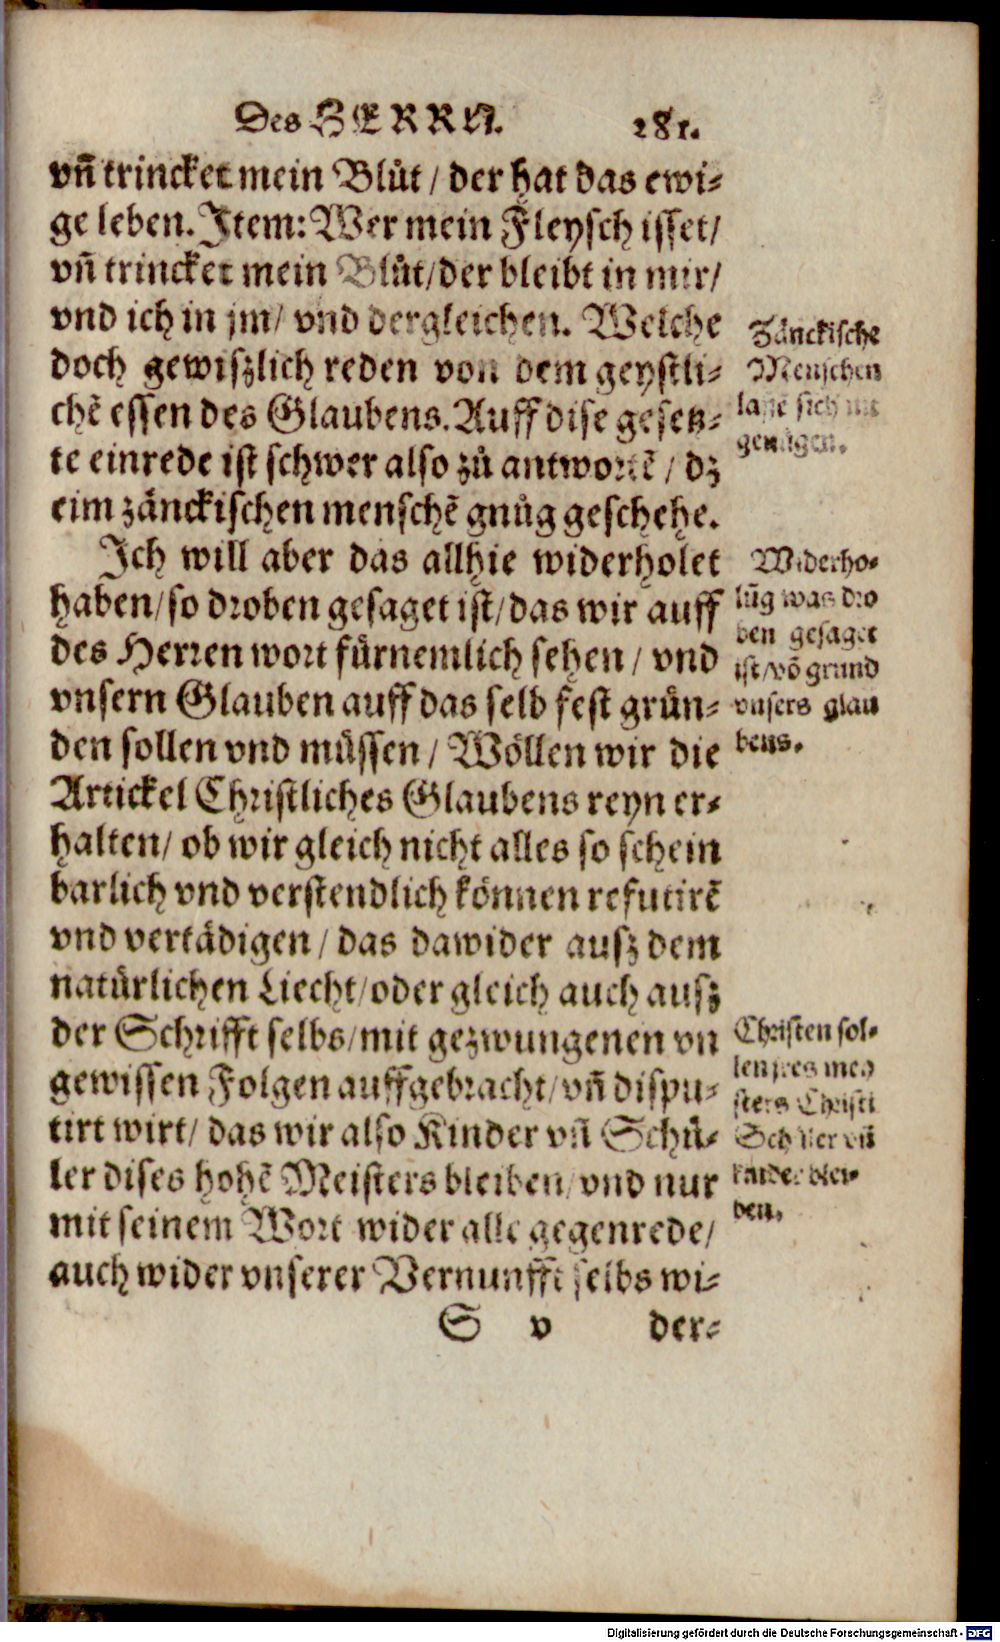 Des HERRN. 281.
vñ trincket mein Blůt / der hat das ewi-
ge leben. Item: Wer mein Fleysch isset/
vñ trincket mein Blůt/der bleibt in mir/
vnd ich in jm/ vnd dergleichen. Welche
doch gewiszlich reden von dem geystli-
chẽ essen des Glaubens. Auff dise gesetz-
te einrede ist schwer also zů antwortẽ / dz
eim zänckischen menschẽ gnůg geschehe.
Ich will aber das allhie widerholet
haben/so droben gesaget ist/das wir auff
des Herren wort fürnemlich sehen / vnd
vnsern Glauben auff das selb fest grün-
den sollen vnd müssen / Wöllen wir die
Artickel Christliches Glaubens reyn er-
halten/ ob wir gleich nicht alles so schein
barlich vnd verstendlich können refutirẽ
vnd vertädigen / das dawider ausz dem
natürlichen Liecht/oder gleich auch ausz
der Schrifft selbs/mit gezwungenen vn
gewissen Folgen auffgebracht/vñ dispu-
tirt wirt/ das wir also Kinder vñ Schü-
ler dises hohẽ Meisters bleiben/vnd nur
mit seinem Wort wider alle gegenrede/
auch wider vnserer Vernunfft selbs wi-
S v der-
Zänckische
Menschen
lassẽ sich nit
genügen.
Widerho-
lũg was dro
ben gesaget
ist/võ grund
vnsers glau
bens.
Christen sol-
len jres mey
sters Christi
Schüler vñ
kinder blei-
ben.
Digitalisierung gefördert durch die Deutsche Forschungsgemeinschaft - DFG